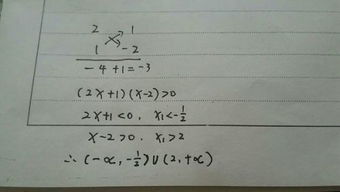 2 1
1 -2
-4+1=-3
(2x+1)(x-2)>0
2x+1<0, x₁<-1/2
x-2>0. x₁>2
∴ (-∞, -1/2)∪(2,+∞)